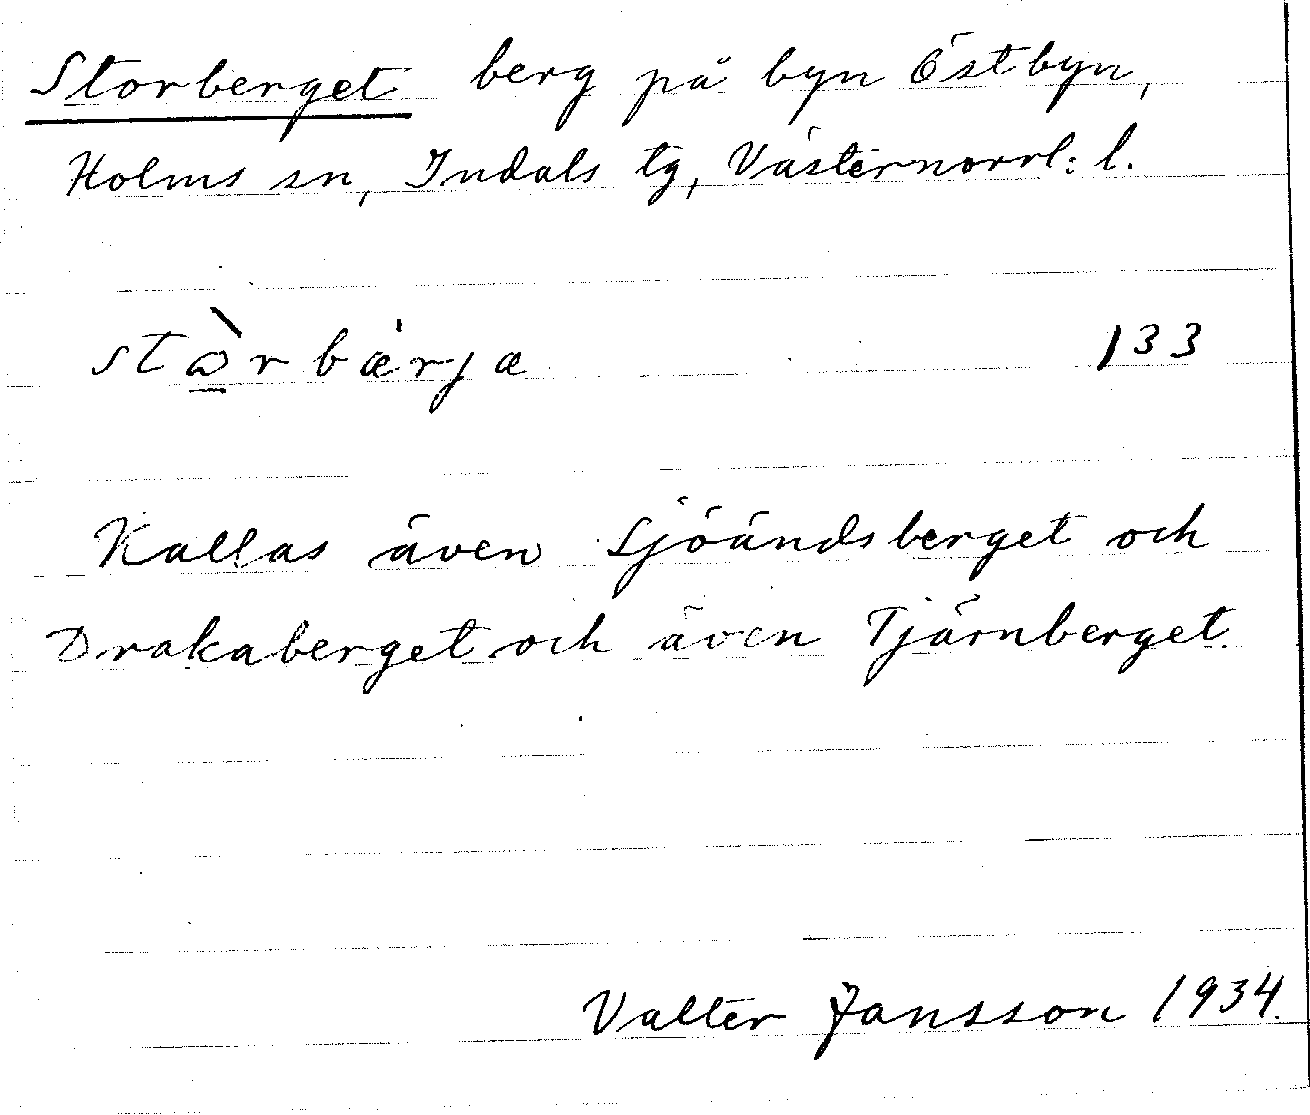 Storberget berg på byn Östbyn,
Holms sn, Indals tg, Västernorrl: l.
stòrbæ̀rja 133
Kallas även Sjöändsberget och
Drakaberget och även Tjärnberget.
Valter Jansson 1934.